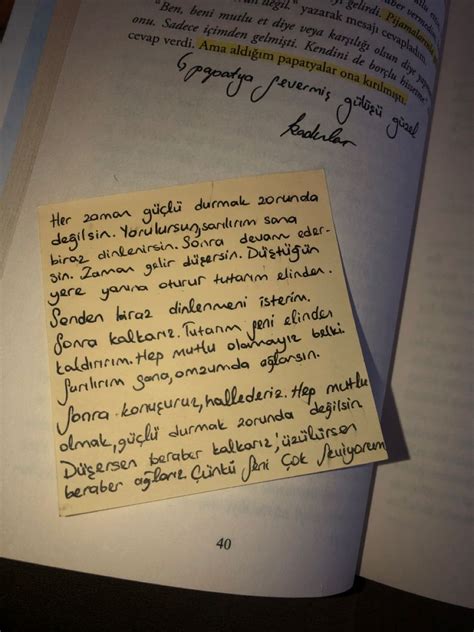 değil." yazarak mesajı cevapladım.
"Ben, beni mutlu et diye veya karşılığı olsun diye
onu. Sadece içimden gelmişti. Kendini de borçlu hissetme"
cevap verdi. Ama aldığım papatyalar ona kırılmıştı.
papatya severmiş gülüşü güzel
kadınlar
Her zaman güçlü durmak zorunda
değilsin. Yorulursun, sarılırım sana
biraz dinlenirsin. Sonra devam eder-
sin. Zaman gelir düşersin. Düştüğün
yere yanına oturur tutarım elinden.
Senden biraz dinlenmeni isterim.
Sonra kalkarız. Tutarım seni elinden
kaldırırım. Hep mutlu olamayız belki.
Sarılırım sana, omzumda ağlarsın.
Sonra konuşuruz, hallederiz. Hep mutlu
olmak, güçlü durmak zorunda değilsin
Düşersen beraber kalkarız, üzülürsen
beraber ağlarız. Çünkü seni çok seviyorum
40